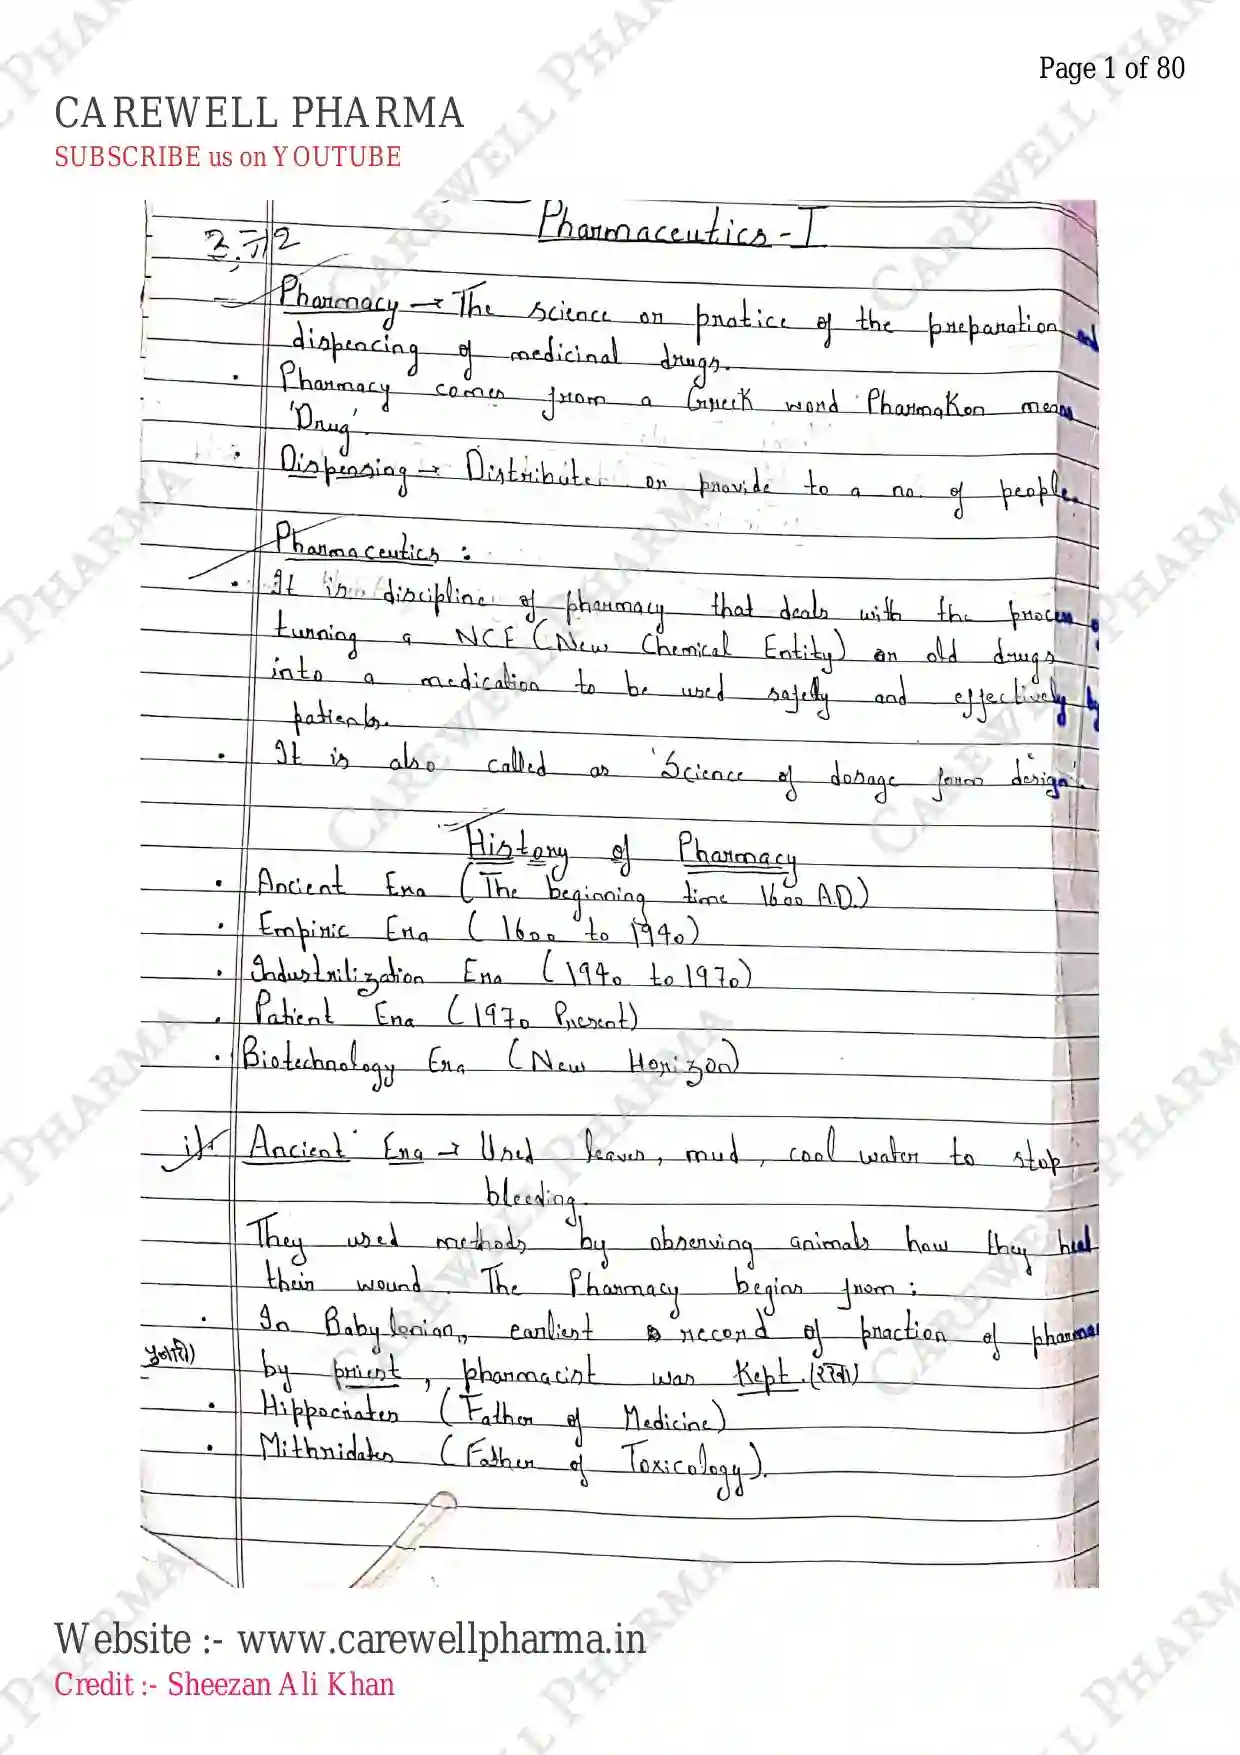 Page 1 of 80
CAREWELL PHARMA
SUBSCRIBE us on YOUTUBE
Pharmaceutics - I
Pharmacy → The science or pratice of the preparation and
dispencing of medicinal drugs.
• Pharmacy comes from a Greek word Pharmakon means
'Drug'.
• Dispensing → Distribute or provide to a no. of people.
Pharmaceutics :
• It is discipline of pharmacy that deals with the process of
turning a NCE (New Chemical Entity) or old drugs
into a medication to be used safely and effectively by
patients.
• It is also called as 'Science of dosage form design'.
History of Pharmacy
• Ancient Era (The beginning time 1600 A.D.)
• Empiric Era (1600 to 1940)
• Industrilization Era (1940 to 1970)
• Patient Era (1970 Present)
• Biotechnology Era (New Horizon)
i) Ancient Era → Used leaves, mud, cool water to stop
bleeding.
They used methods by observing animals how they heal
their wound. The Pharmacy begins from :
• In Babylonian, earliest record of praction of pharmacy
पुजारी)
by priest, pharmacist was Kept. (रखा)
• Hippocrates (Father of Medicine)
• Mithridates (Father of Toxicology).
Website :- www.carewellpharma.in
Credit :- Sheezan Ali Khan
CAREWELL PHARMA